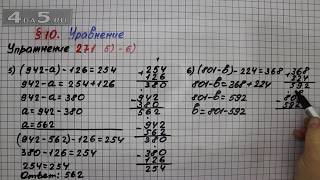 4a5.ru
§10. Уравнение
Упражнение 271 5) - 6)
5) (942-a) - 126 = 254
942-a = 254 + 126
942-a = 380
a = 942-380
a = 562
(942-562) - 126 = 254
380-126 = 254
254 = 254
Ответ: 562
+ 254
126
380
- 942
380
562
- 942
562
380
- 380
126
254
6) (801-b) - 224 = 368
801-b = 368 + 224
801-b = 592
b = 801-592
+ 368
224
592
- 801
592